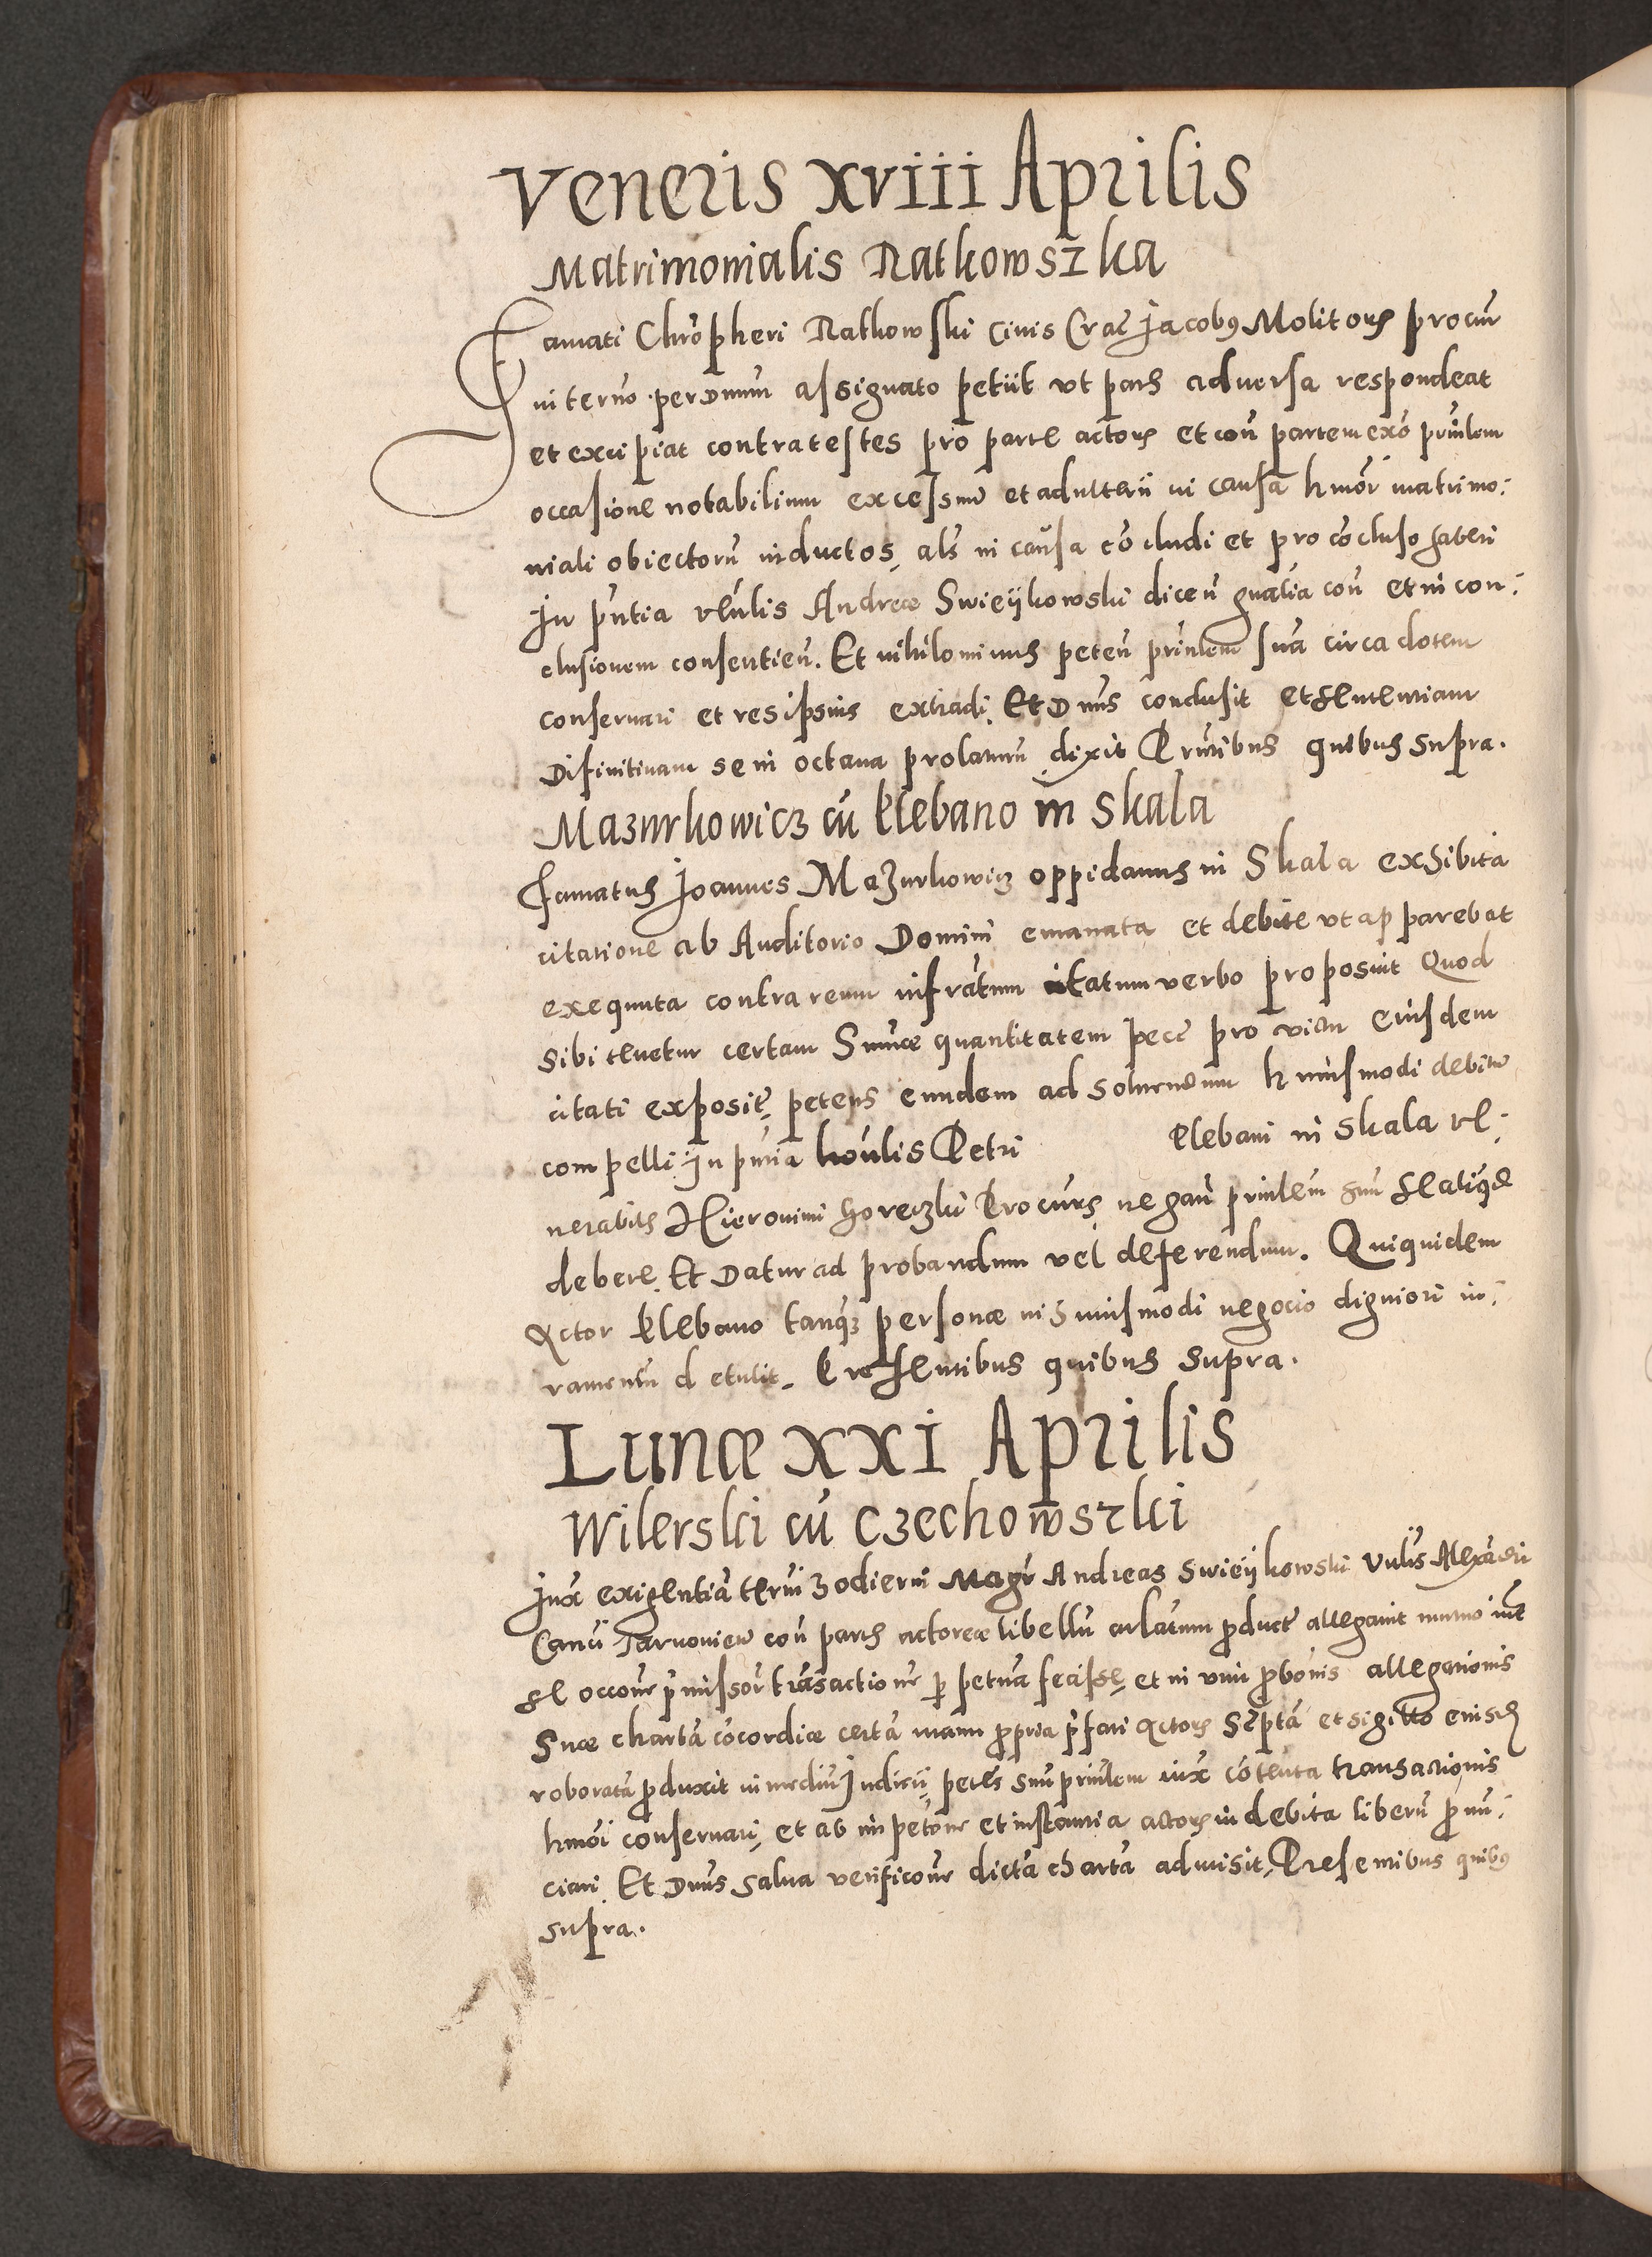 Veneris xviii Aprilis
Matrimonialis Ratkowszka
Famati Chrõpheri Ratkowski civis Crac̃ Jacobꝰ Molitoris procur̃
in ternõ per Dnum assignato petiit vt pars adversa respondeat
et excipiat contra testes pro parte actoris et coñ partem exõ prinlem
occasione notabilium excessuũ et adulterii in causa hmõi matrimo:
niali obiectorũ inductos, als in causa cõcludi et pro cõcluso haberi
In pñtia vẽnlis Andreæ Swieÿkowski diceñ gnalia coñ et in con:
clusionem consentieñ. Et nihilominus peteñ prinlem suũ circa dotem
conservari et res ipsius extradi. Et Dnus conclusit et sententiam
Difinitivam se in octava prolaturũ dixit Prñtibus quibus supra.
Mazurkowicz cũ Plebano in Skala
Famatus Joannes Mazurkowicz oppidanus in Skala exhibita
citatione ab Auditorio Domini emanata et debite vt apparebat
exequuta contra reum infratum citatum verbo proposuit Quod
sibi tenetur certam Summæ quantitatem pecc̃ pro victu eiusdem
citati exposit̃, petens eundem ad solvendum huiusmodi debitũ
compelli. In pñtia honlis Petri Plebani in Skala ve:
nerabilis Hieronimi Goreczki Procuris negañ prinlem suũ se aliqd
debere. Et Datur ad probandum vel deferendum. Quiquidem
Actor Plebano tanqȝ personæ in huiusmodi negocio digniori iu:
ramentũ detulit. Presentibus quibus supra.
Lunæ xxi Aprilis
Wilerski cũ Czechowszki
Jux̃ exigentiã termi hodierni Magr̃ Andreas Swieÿkowski Vnlis Alexãdri
Canci Tarnovieñ coñ partis actoreæ libellũ oblatum p̃duct̃ allegavit mutuo int̃
se occone p̃missor̃ trãsactionẽ p̃petuã fecisse, et in vim p̃bonis allegationis
suæ chartã cõcordiæ certã manu p̃pria p̃fati Actoris sc̃ptã et sigillo eiusd̃
roboratã p̃duxit in mediũ Judicii, peteñs suũ prinlem iux̃ cõtenta transactionis
hmõi conservari, et ab impetõne et instantia actoris indebita liberũ p̃nũ:
ciari. Et Dnus salva verificõne dictã chartã admisit, Presentibus quibꝰ
supra.